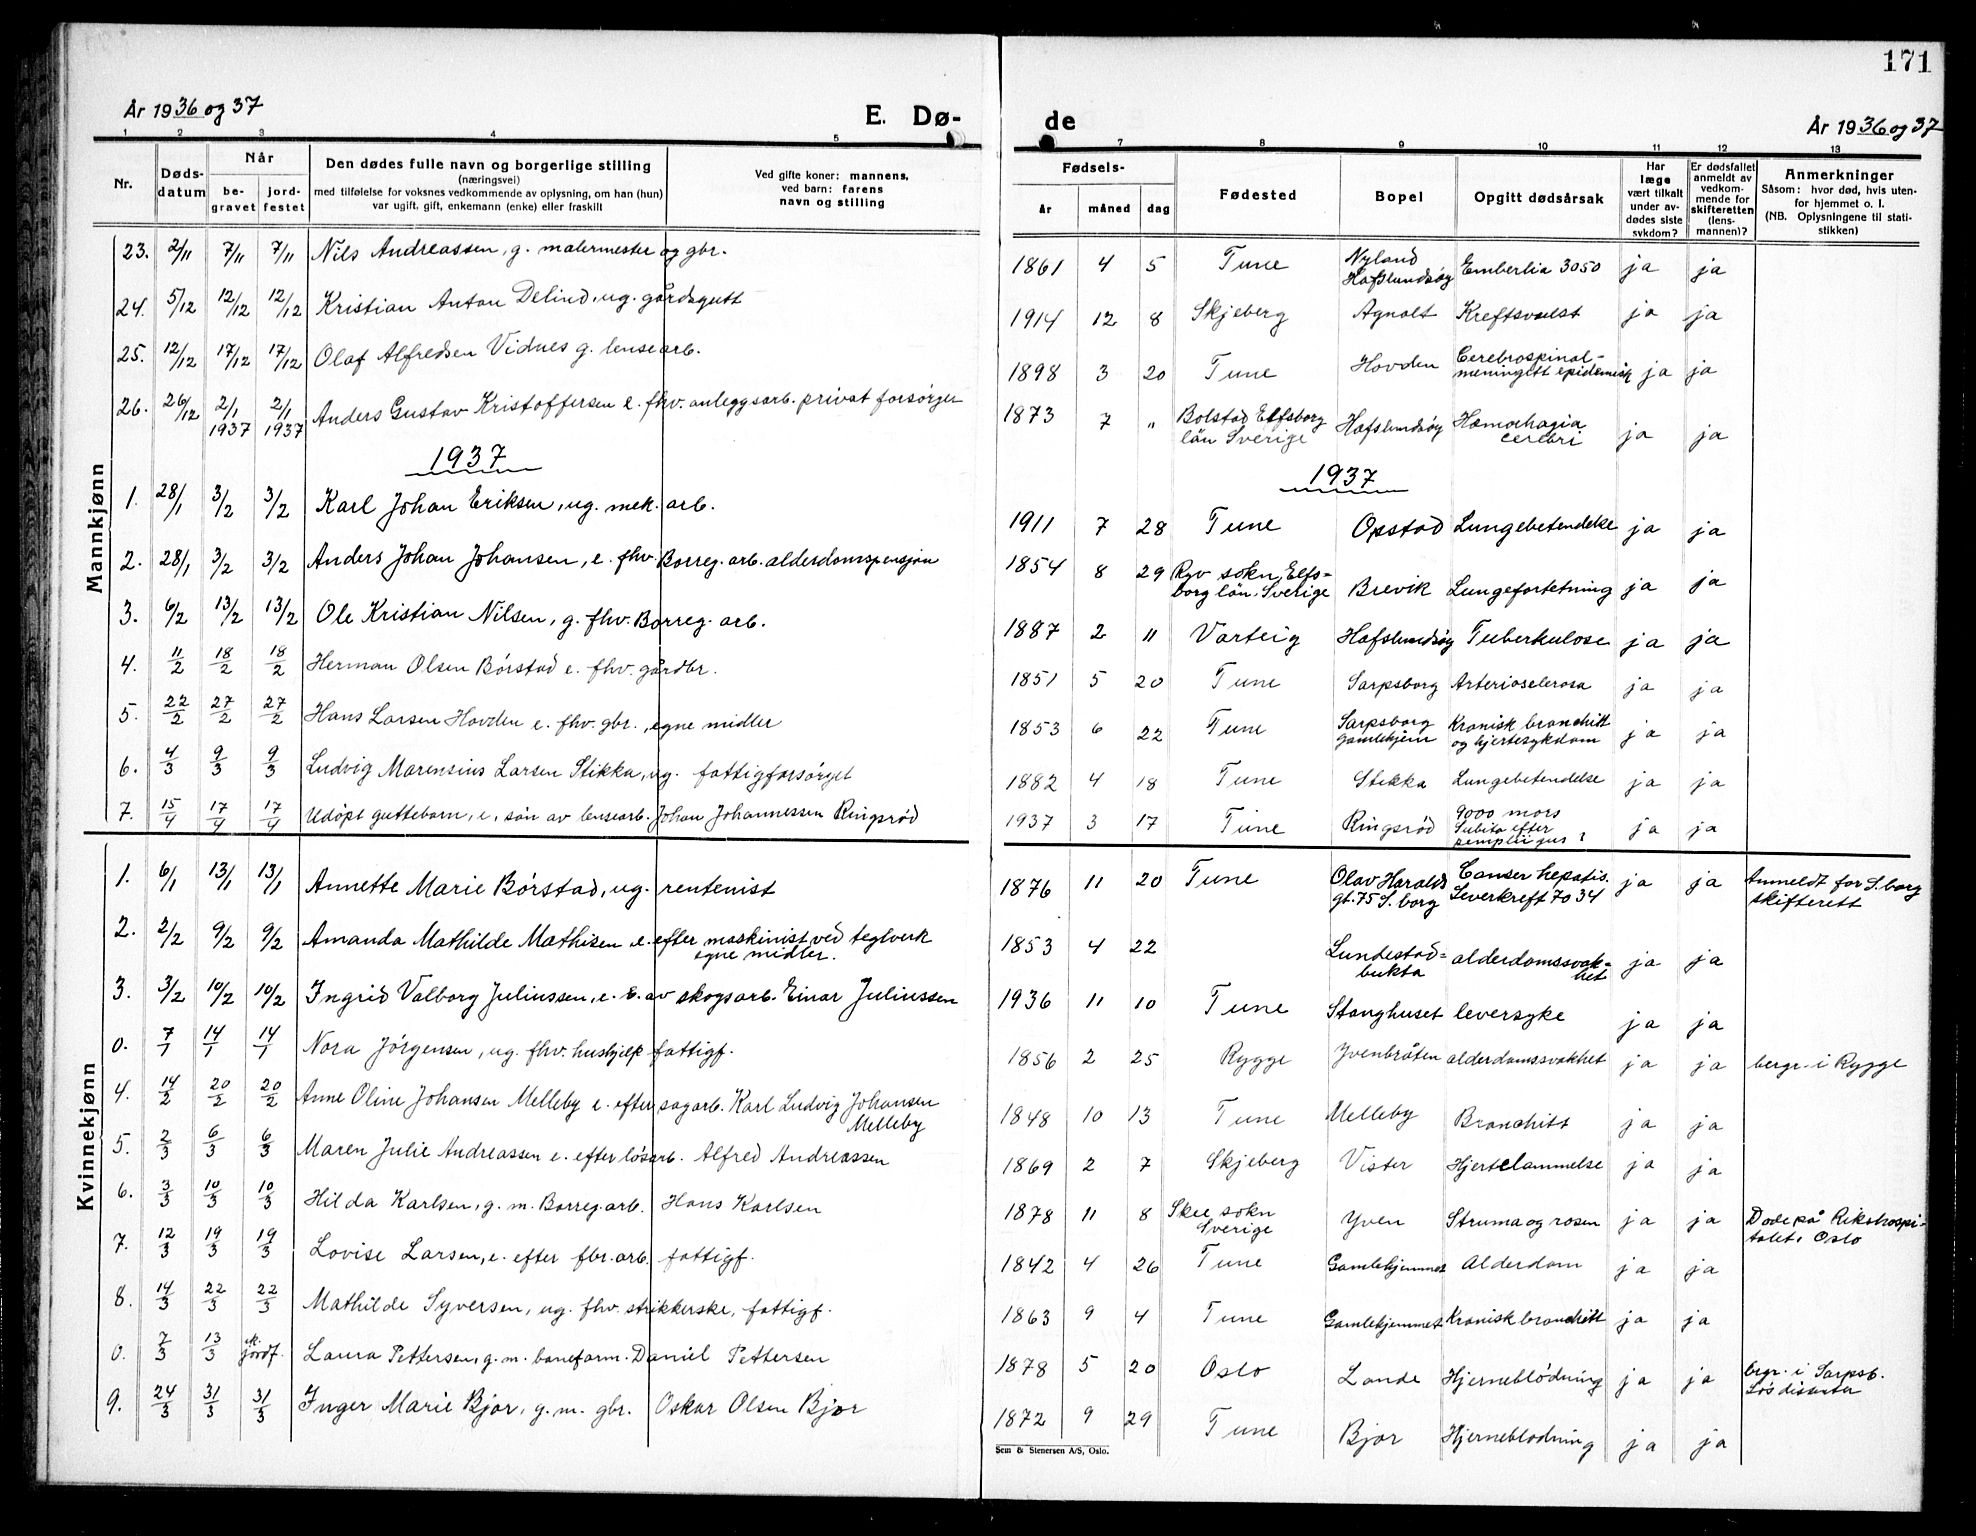 171
År 1936 og 37
E. Dø-
de
År 1936 og 37
1 2 3 4 5 7 8 9 10 11 12 13
Nr.
Døds-
datum
Når
be-
gravet
jord-
festet
Den dødes fulle navn og borgerlige stilling
(næringsvei)
med tilføielse for voksnes vedkommende av oplysning, om han (hun)
var ugift, gift, enkemann (enke) eller fraskilt
Ved gifte koner: mannens,
ved barn: farens
navn og stilling
Fødsels-
år måned dag
Fødested
Bopel
Opgitt dødsårsak
Har
læge
vært tilkalt
under av-
dødes siste
sykdom?
Er dødsfallet
anmeldt av
vedkom-
mende for
skifteretten
(lens-
mannen)?
Anmerkninger
Såsom: hvor død, hvis uten-
for hjemmet o. l.
(NB. Oplysningene til stati-
stikken)
Mannkjønn
23. 2/11 7/11 7/11 Nils Andreassen, g. malermester og gbr. 1861 4 5 Tune Nyland
Hafslundsøy Emberlia 3050 ja ja
24. 5/12 12/12 12/12 Kristian Anton Delind, ug. gårdsgutt 1914 12 8 Skjeberg Agnalt Kreftsvulst ja ja
25. 12/12 17/12 17/12 Olaf Alfredsen Vidnes g. lensearb. 1898 3 20 Tune Hovden Cerebrospinal-
meningitt epidemisk ja ja
26. 26/12 2/1 1937 2/1 1937 Anders Gustav Kristoffersen e. fhv. anleggsarb. privat forsørget 1873 7 " Bolstad Elfsborg
län Sverige Hafslundsøy Hæmorhagia
cerebri ja ja
1937 1937
1. 28/1 3/2 3/2 Karl Johan Eriksen, ug. mek. arb. 1911 7 28 Tune Opstad Lungebetendelse ja ja
2. 28/1 3/2 3/2 Anders Johan Johansen, e. fhv. Borreg. arb. alderdomspensjon 1854 8 29 Ryv sokn, Elfs=
borg län, Sverige Brevik Lungefortetning ja ja
3. 6/2 13/2 13/2 Ole Kristian Nilsen, g. fhv. Borreg. arb. 1887 2 11 Varteig Hafslundsøy Tuberkulose ja ja
4. 11/2 18/2 18/2 Herman Olsen Børstad e. fhv. gårdbr. 1851 5 20 Tune Sarpsborg Arteriosclerosa ja ja
5. 22/2 27/2 27/2 Hans Larsen Hovden e. fhv. gbr., egne midler 1853 6 22 Tune Sarpsborg
gamlehjem Kronisk bronchitt
og hjertesykdom ja ja
6. 4/3 9/3 9/3 Ludvig Marensius Larsen Stikka, ug. fattigforsørget 1882 4 18 Tune Stikka Lungebetendelse ja ja
7. 15/4 17/4 17/4 Udøpt guttebarn, e. søn av lensearb. Johan Johannessen Ringsrød 1937 3 17 Tune Ringsrød 9000 mors
Subita efter ja ja
Kvinnekjønn
1. 6/1 13/1 13/1 Annette Marie Børstad, ug. rentenist 1876 11 20 Tune Olav Haralds
gt. 75 S.borg Canser hepatis.
Leverkreft 7034 ja ja Anmeldt for S.borg
skifterett
2. 2/2 9/2 9/2 Amanda Mathilde Mathisen e. efter maskinist ved teglverk
egne midler. 1853 4 22 Lundestad=
bukta alderdomssvak=
het ja ja
3. 3/2 10/2 10/2 Ingrid Valborg Juliussen, e. b. av skogsarb. Einar Juliussen 1936 11 10 Tune Stanghuset leversyke ja ja
0. 7/1 14/1 14/1 Nora Jørgensen, ug. fhv. hushjelp fattigf. 1856 2 25 Rygge Yvenbråten alderdomssvakhet ja ja begr. i Rygge
4. 14/2 20/2 20/2 Anne Oline Johansen Melleby e. efter sagarb. Karl Ludvig Johansen
Melleby 1848 10 13 Tune Melleby Bronchitt ja ja
5. 2/3 6/3 6/3 Maren Julie Andreassen e. efter løsarb. Alfred Andreassen 1869 2 7 Skjeberg Vister Hjertelammelse ja ja
6. 3/3 10/3 10/3 Hilda Karlsen, g. m. Borreg. arb. Hans Karlsen 1878 11 8 Skee sokn
Sverige Yven Struma og rosen ja ja Døde på Rikshospi-
talet, Oslo
7. 12/3 19/3 19/3 Lovise Larsen, e. efter fbr. arb. fattigf. 1842 4 26 Tune Gamlehjemmet Alderdom ja ja
8. 14/3 22/3 22/3 Mathilde Syversen, ug. fhv. strikkerske, fattigf. 1863 9 4 Tune Gamlehjemmet Kronisk bronchitt ja ja
0. 7/3 13/3 ik. jordf. Laura Pettersen, g. m. baneform. Daniel Pettersen 1878 5 20 Oslo Lande Hjerneblødning ja ja begr. i Sarpsb.
Løs disenter
9. 24/3 31/3 31/3 Inger Marie Bjor, g. m. gbr. Oskar Olsen Bjor 1872 9 29 Tune Bjor Hjerneblødning ja ja
Sem & Stenersen A/S, Oslo.